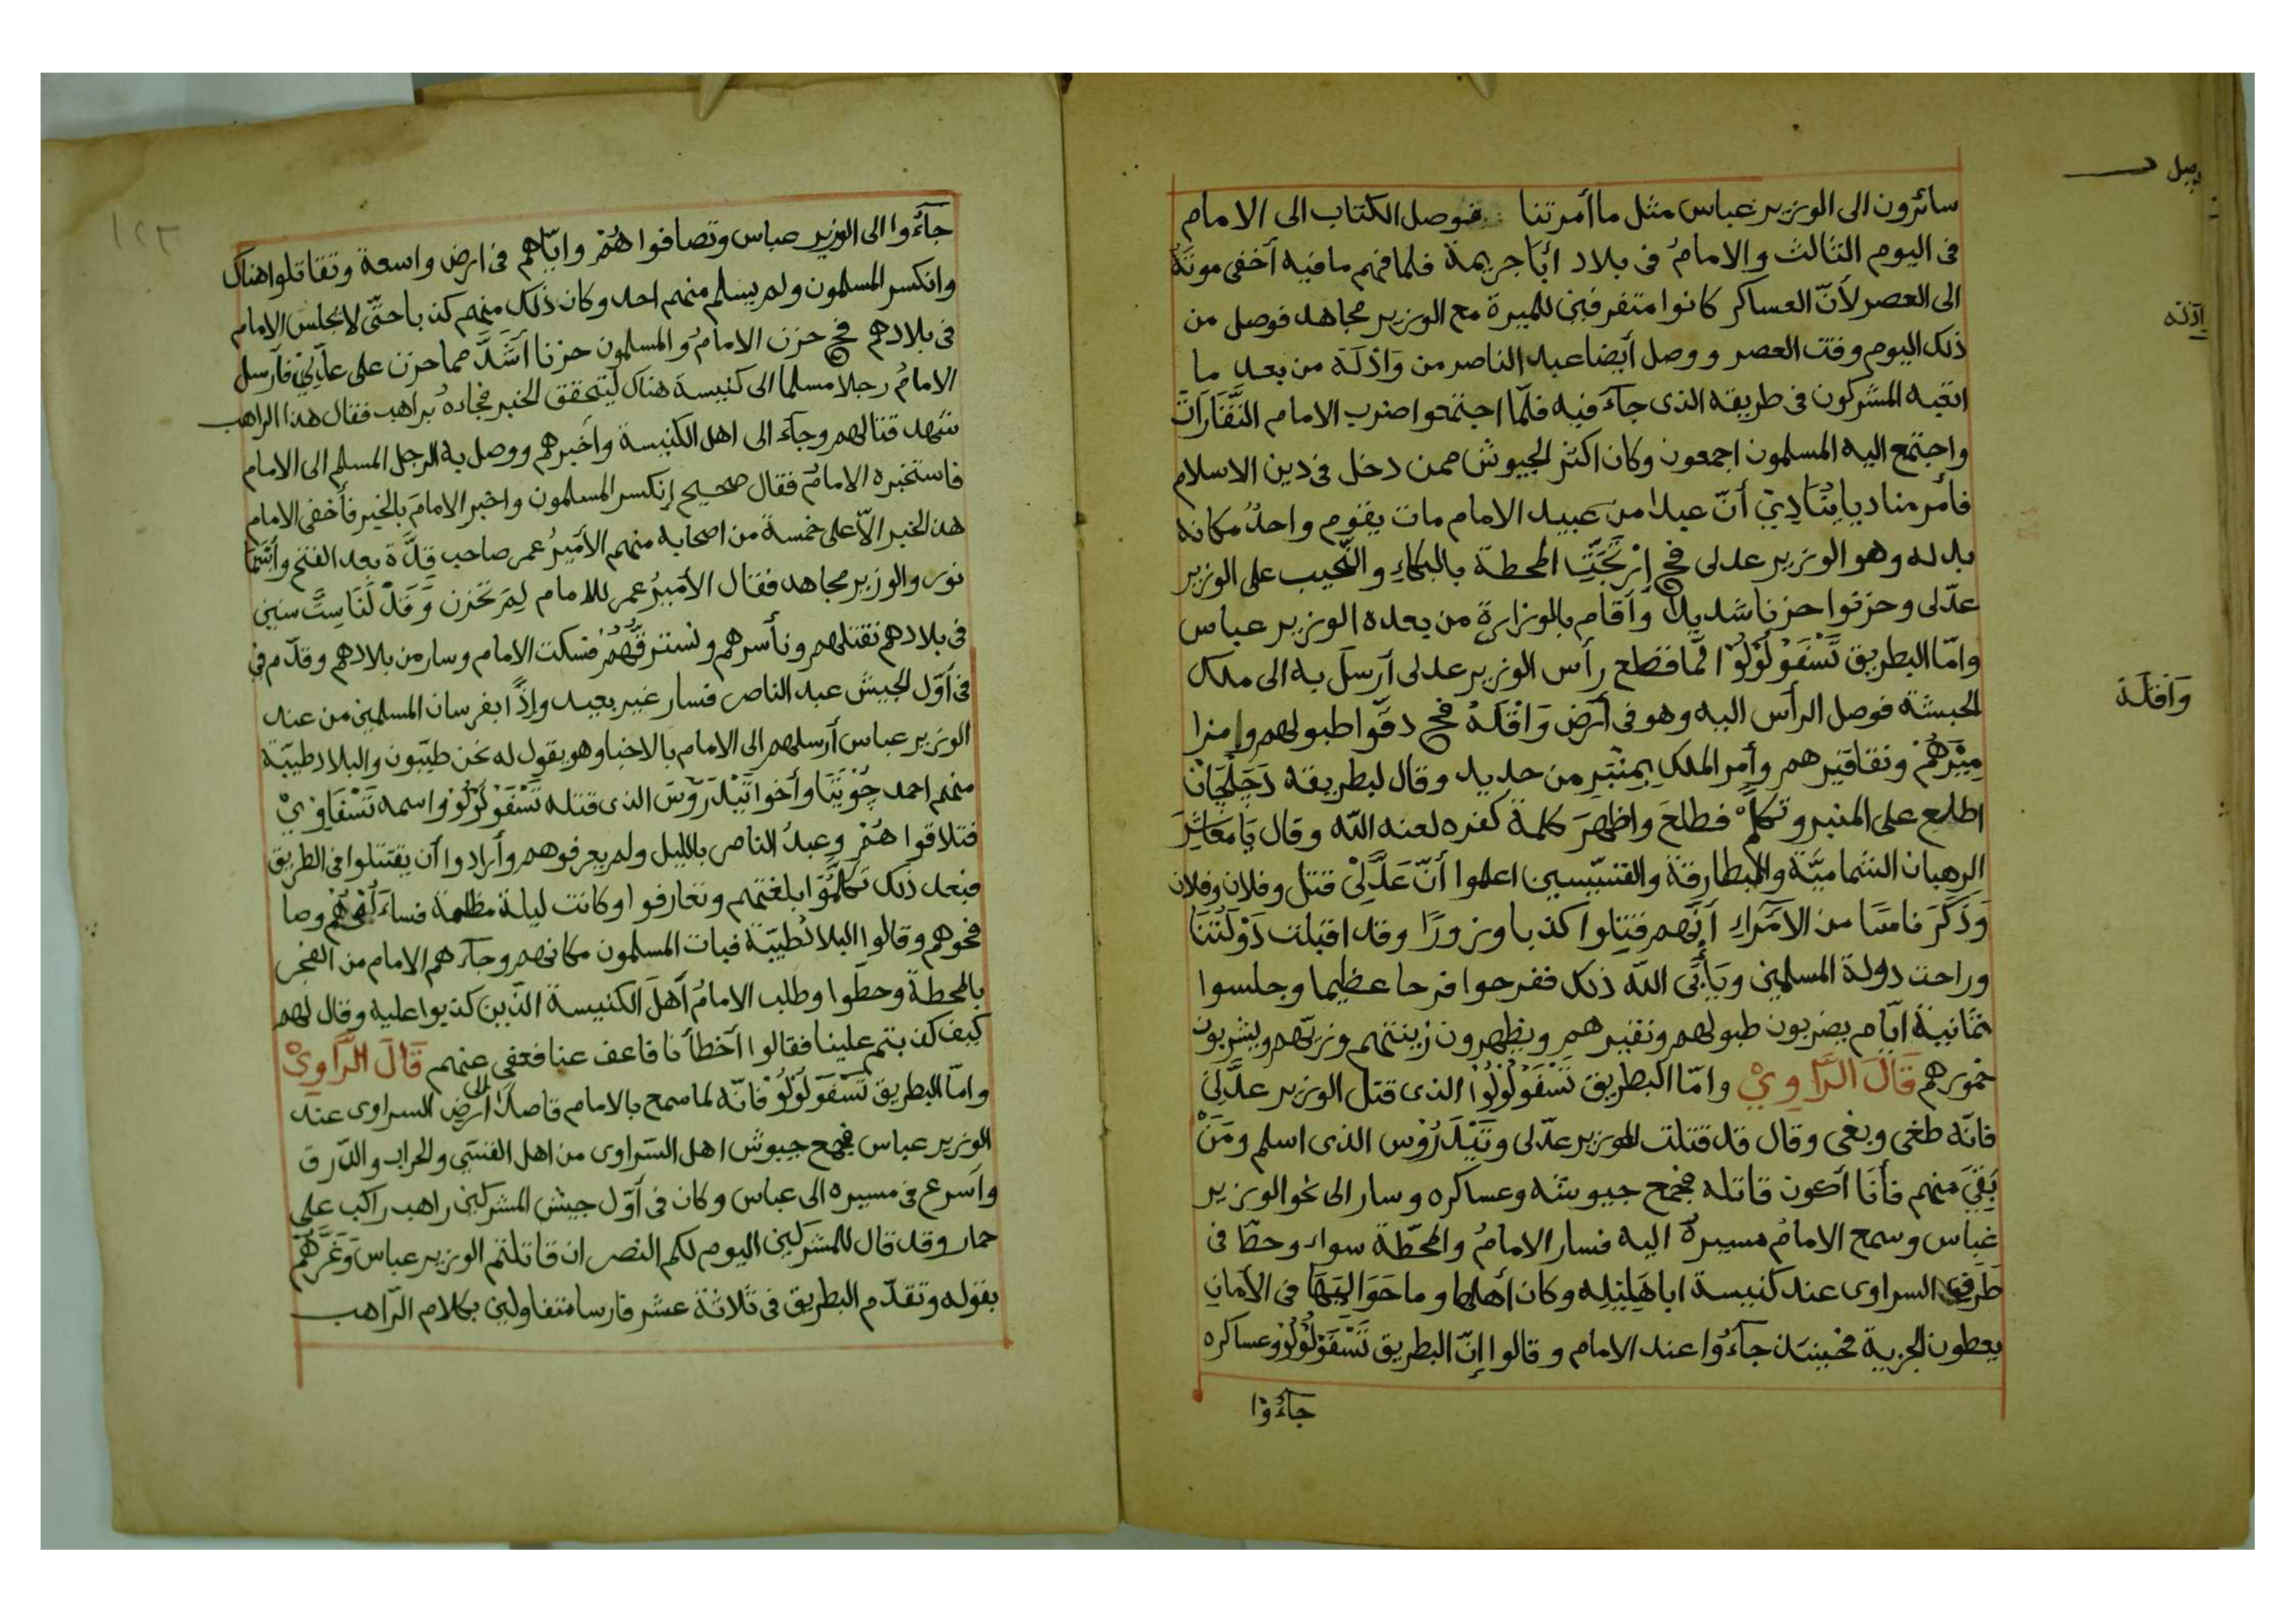 سائرون الى الوزير عباس مثل ما أمرتنا فوصل الكتاب الى الامام
فى اليوم الثالث والامامُ فى بلاد أبَا جريمة فلما فهم ما فيه أخفى موتَهُ
الى العصر لأنّ العساكر كانوا متفرقين للميرة مع الوزير مجاهد فوصل من
ذلك اليوم وقت العصر ووصل أيضا عبد الناصر من وَاذَلَة من بعد ما
اتعبه المشركون فى طريقه الذى جآءَ فيه فلمّا اجتمعوا ضرب الامام النَّقَّارَات
واجتمع اليه المسلمون اجمعون وكان اكثر الجيوش ممن دخل فى دين الاسلام
فأمر مناديا يُنَادِيْ أنّ عبدا من عبيد الامام مات يقوم واحدُ مكانه
بدله وهو الوزير عدلى فح إرْتَجَّتِ المحطة بالبكاءِ والنَّحيب على الوزير
عدّلى وحزنوا حزنا شديدا وأقام بالوزارة من بعده الوزير عباس
وامّا البطريق تَسْفَوْ لُوْلُوْا لمّا قطع رأس الوزير عدلى أرسل به الى ملك
الحبشة فوصل الرأس اليه وهو فى أرض وَافْلَهْ فح دقّوا طبولهم وامزا
مِيْرَهُمْ ونقاقيرهم وأمر الملك بِمنْبَرٍ من حديد وقال لبطريقه دَجَلْجَانْ
اطلع على المنبر وتكلّمْ فطلعَ واظهرَ كلمة كفره لعنه اللّه وقال يَا مَعَاشِرَ
الرهبان الشماميَّة والبطارقة والقسّيسين اعلموا أنّ عَدَّلِىْ قتل وفلان وفلان
وَذَكَرَ نامسًا من الأمَرَاءِ أنّهم قتِلوا كذبا وزورًا وقد اقبلت دَوْلَتُنَا
وراحت دولة المسلمين ويَأبَى اللّه ذلك ففرحوا فرحا عظيما وجلسوا
ثمانية ايّام يضربون طبولهم ونفيرهم ويظهرون زينتهم وزيّهم ويشربون
خمورهم قَالَ الرَّاوِيْ وامّا البطريق تَسْفَوْلُوْلُوْا الذى قتل الوزير عدَّلِىْ
فانّه طغى وبغى وقال قد قتلت الوزير عدّلى وتَيْدَرُوْس الذى اسلم ومَنْ
بَقِىَ منهم فأنَا أكون قاتله فجمع جيوشه وعساكره وسار الى نحو الوزير
عَبَاس وسمع الامام مسيرهُ اليه فسار الامامُ والمحطّة سواء وحطّا فى
طَرَفِ السراوى عند كنيسة ابا هَلِيْلِه وكان أهلها وما حَوَالَيْهَا فى الأمان
يعطون الجزية فحينئذ جآءُوْا عند الامام وقالوا إنّ البطريق تَسْفَوْلُوْلُوْ وعساكره
جآءُوْا
وَافَلَة
جآءُوا الى الوزير عباس وتصافوا هُمْ وايّاهم فى ارض واسعة وتقاتلوا هناك
وانكسر المسلمون ولم يسلم منهم احد وكان ذلك منهم كذبا حتّى لا يجلس الامام
فى بلادهم فح حزن الامامُ والمسلمون حزنا أشدَّ مما حزن على عدَّلِىْ فأرسل
الامامُ رجلا مسلما الى كنيسة هناك ليتحقق الخبر فجاءهُ براهب فقال هذا الراهب
شهد قتالهم وجآءَ الى اهل الكنيسة وأخبرهم ووصل به الرجل المسلم الى الامام
فاستخبره الامامُ فقال صحيح إنكسر المسلمون واخبر الامامَ بالخبر فأخفى الامام
هذ الخبر الاّ على خمسة من اصحابه منهم الأمَيِرُ عمر صاحب قِدَّة بعد الفتح
نور والوزير مجاهد فقال الأمَيِرُ عمر للامام لِمَ تحزن وَقَدْ لَنَا سِتَّ سنين
فى بلادهم نقتلهم ونأسرهم ونسترقُّهُمْ فسكت الامام وسار من بلادهم وقدّم فى
فى أوّل الجيش عبد الناصر فسار غير بعيد وإذًا بفرسان المسلمين من عند
الوزير عباس أرسلهم الى الامام بالاخبار وهو يقول له نحن طيّبون والبلاد طيّبة
منهم احمد جُوْيَتَا وأخوا تَيْدَرُوْسَ الذى قتله تَسْفَوْلُوْلُوْ واسمه
فتلاقوا هُمْ وعبدُ الناصر بالليل ولم يعرفوهم وأرادوا أن يقتتلوا فى الطريق
فبعد ذلك تكلّمُوْا بلغتهم وتعارفوا وكانت ليلة مظلمة
نحوهم وقالوا البلادُ طيّبة فبات المسلمون مكانهم وجآءَهم الامام من الفجر
بالمحطة وحطوا وطلب الامامُ أهلَ الكنيسة الذين كذبوا عليه وقال لهم
كيف كذبتم علينا فقالوا أخطأنا فاعف عنا فعفى عنهم قَالَ الرَّاوِيْ
وامّا البطريق تَسْفَوْلُوْلُوْ فانّه لما سمع بالامام قاصدا الى ارض السراوى عند
الوزير عباس فجمع جيوش اهل السّراوى من اهل القسّىِ والحراب والدّرق
وأسرع فى مسيره الى عباس وكان فى أوّل جيش المشركين راهب راكب على
حمار وقد قال للمشركين اليوم لكم النصر ان قاتلتم الوزير عباس وَغَرَّهُمْ
بقوله وتقدّم البطريق فى ثلاثة عشر فارسا متفاولين بكلام الرّاهب